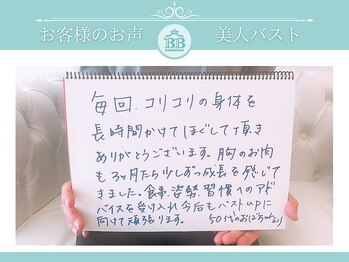 お客様のお声
BB
美人バスト
毎回、コリコリの身体を
長時間かけてほぐして頂き
ありがとうございます。胸のお肉
も3ヶ月たち少しずつ成長を感じて
きました。食事、姿勢、習慣へのアド
バイスを受け入れ今後もバストupに
向けて頑張ります。 50代のおばちゃんより